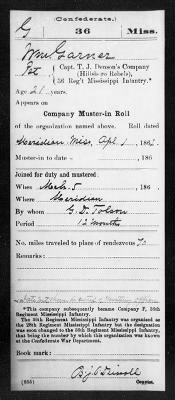 (Confederate.)
G 36 Miss.
Wm Garner
Pvt Capt. T. J. Denson's Company
(Hillsboro Rebels),
36 Reg't Mississippi Infantry.*
Age 21 years.
Appears on
Company Muster-in Roll
of the organization named above. Roll dated
Meridian Miss, Apl. 1, 186
Muster-in to date 186
Joined for duty and mustered:
When Mch. 5, 186
Where Meridian
By whom G. D. Tolson
Period 12 months
No. miles traveled to place of rendezvous 70
Remarks:
*This company subsequently became Company F, 36th
Regiment Mississippi Infantry.
The 36th Regiment Mississippi Infantry was organized as
the 28th Regiment Mississippi Infantry but the designation
was soon changed to the 36th Regiment Mississippi Infantry,
that being the number by which this organization was known
at the Confederate War Department.
Book mark:
(655) Copyist.